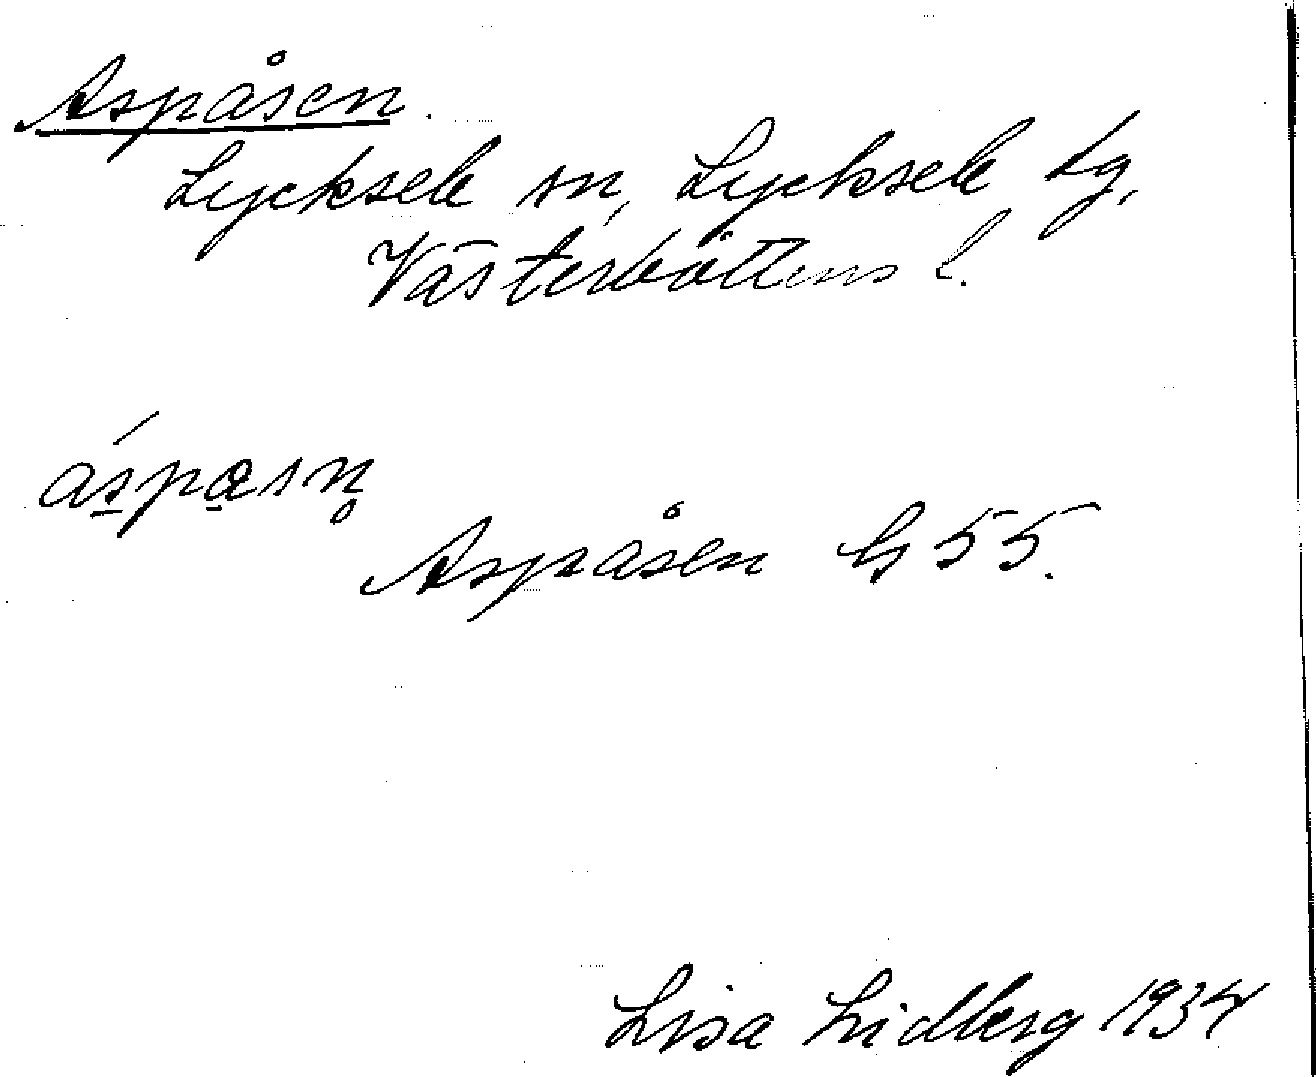 Aspåsen.
Lycksele sn, Lycksele lg,
Västerbottens l.
áspåsn̥
Aspåsen G 55.
Lisa Lidberg 1934